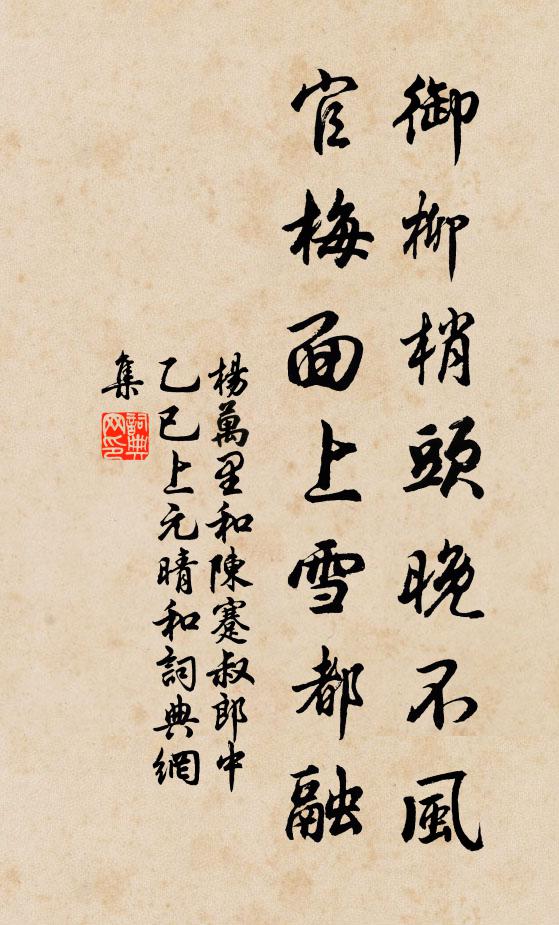 御柳梢頭晚不風
官梅面上雪都融
楊萬里和陳蹇叔郎中
乙巳上元晴和詞典網
集
詞典網印